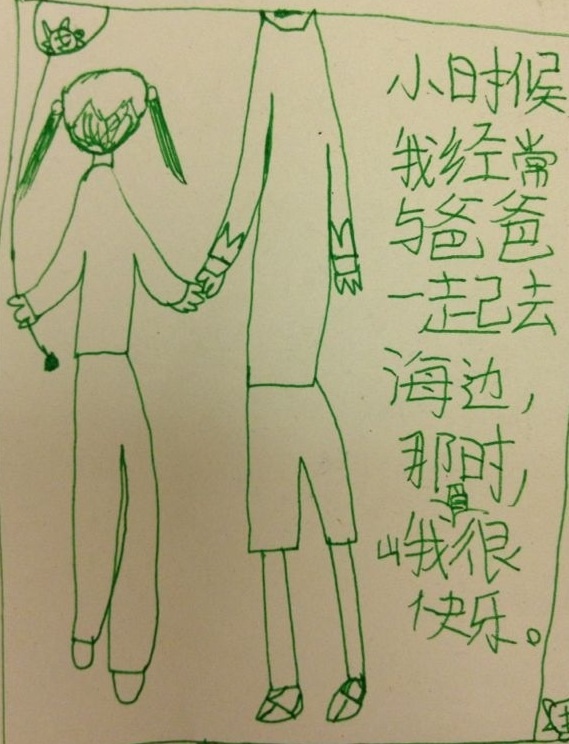 小时候
我经常
与爸爸
一起去
海边，
那时，
峨很
快乐。